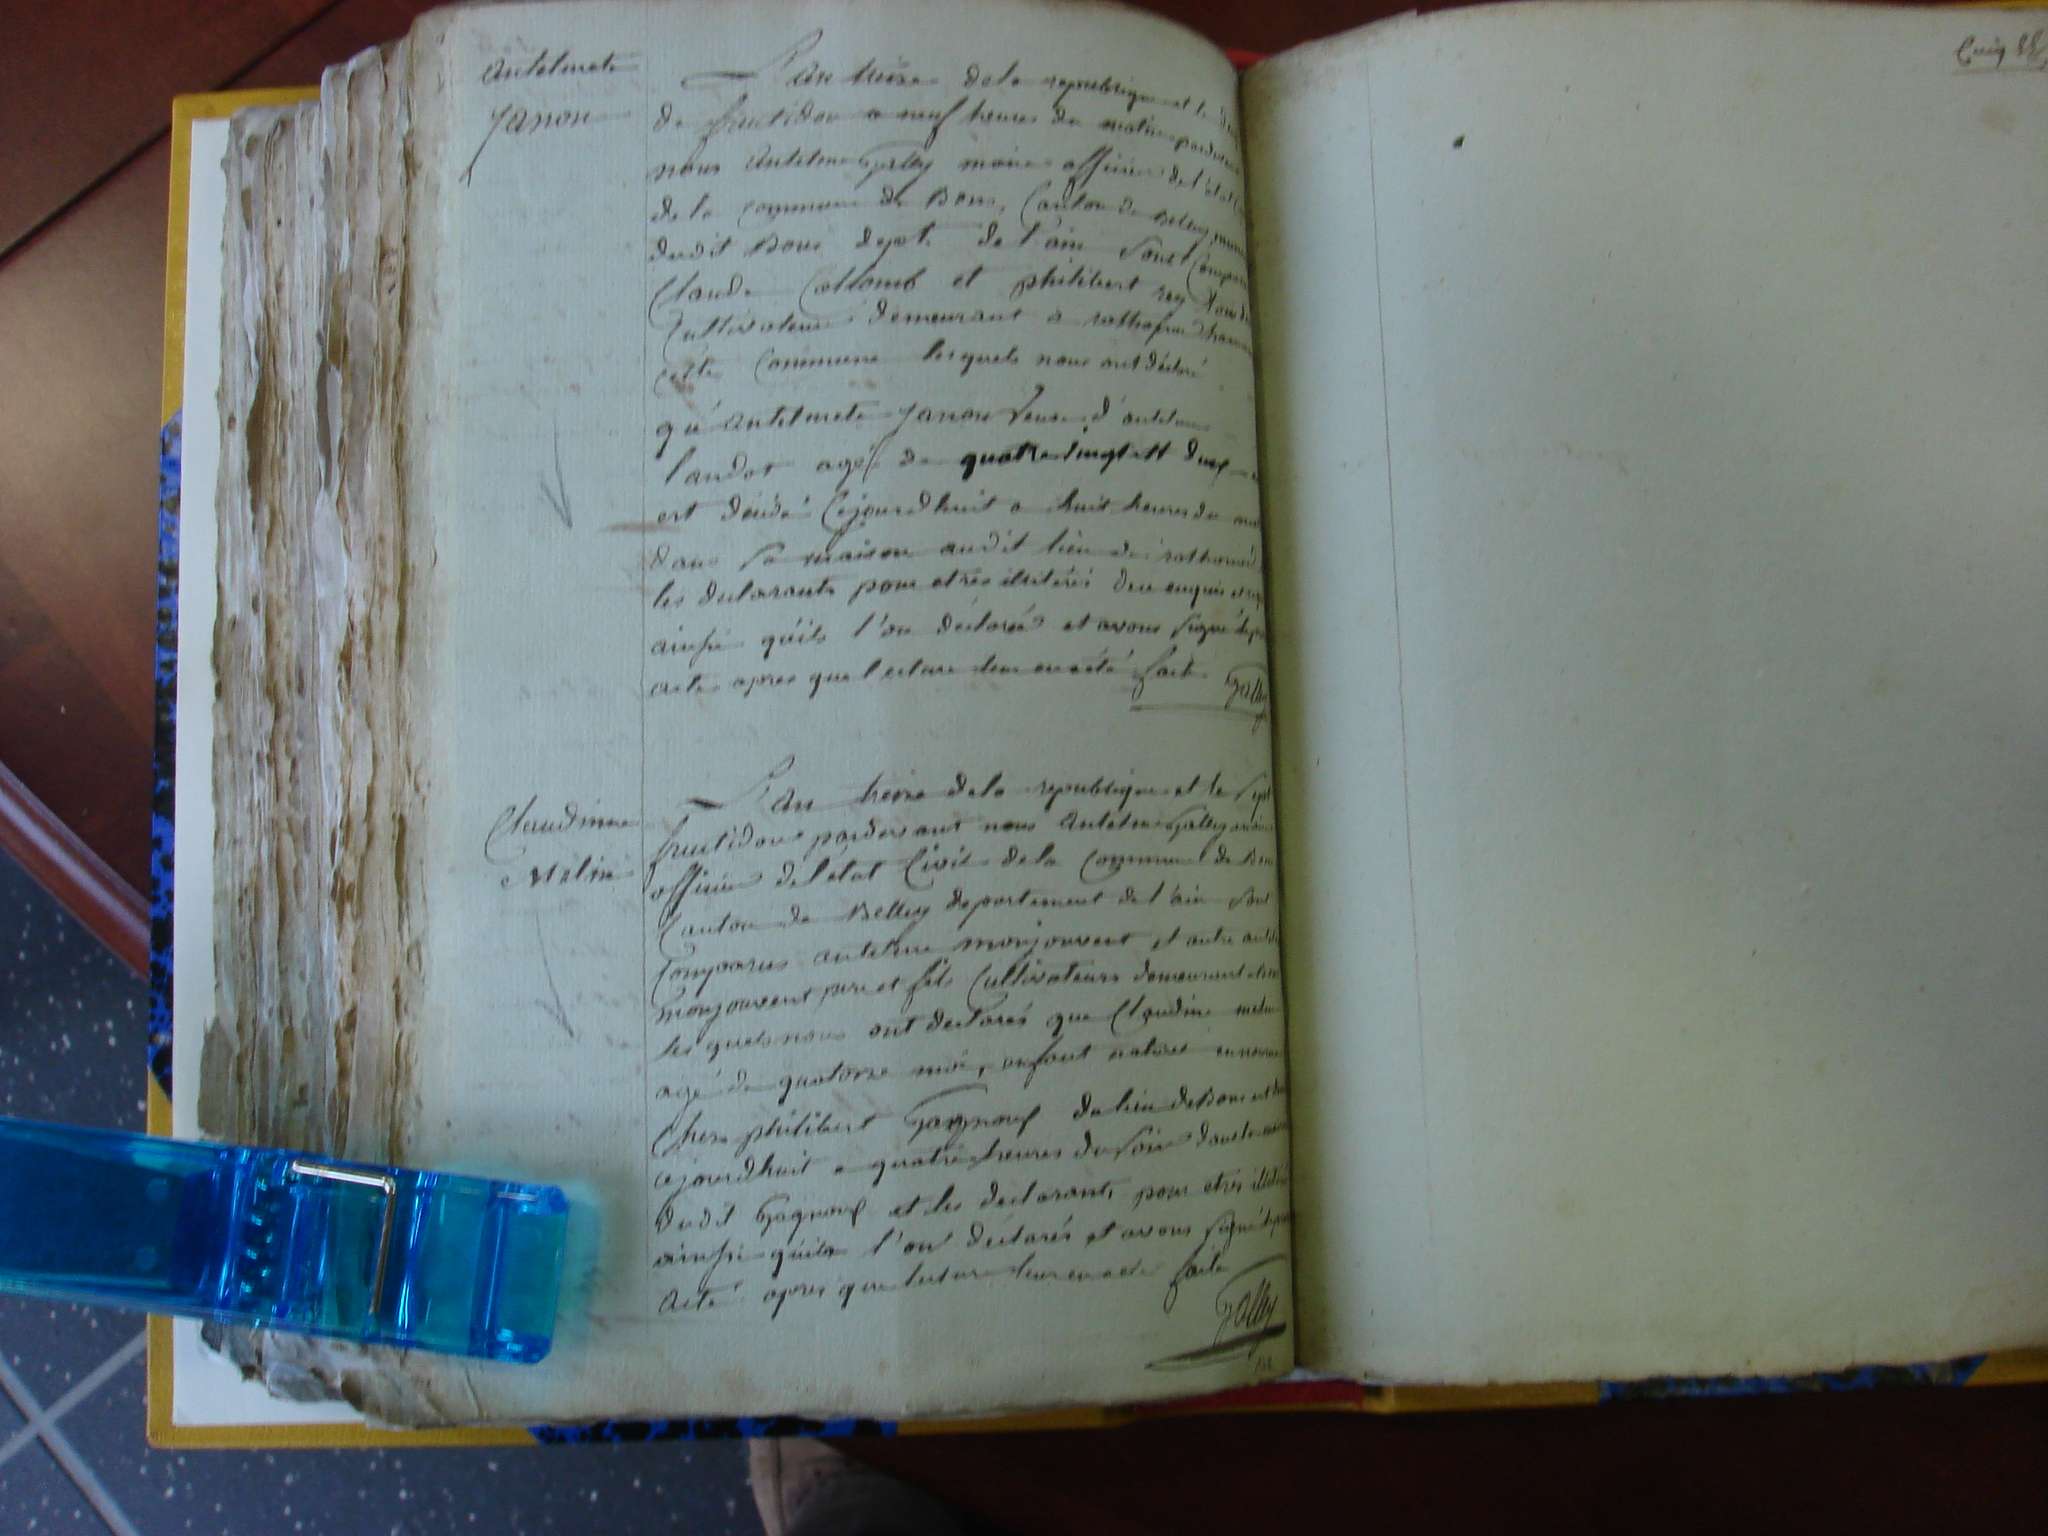 Antelmete
Janon
L'an treise de la republique et le
de fructidor a neuf heures du matin pardevant
nous Antelme Galley maire officier de l'etat
de la commune de Bons, Canton de Belley
dudit Bons dept. de l'ain Sont Comparu
Claude Collomb et philibert rey tous deux
Cultivateurs demeurant a
cette Commune lesquels nous ont déclaré
qu'Antelmete Janon veuve d'antelme
landot agé de quatre vingt et deux
est décédé Cejourdhuit a huit heures du
dans Sa maison audit lieu de
les declarants pour etres illiterés de ce enquis et
ainsi quils l'on déclarés et avons Signé
acte apres que lecture leur en a été faite Galley
Claudinne
Melin
L'an treise de la republique et le Sept
fructidor pardevant nous Antelme Galley maire
officier de l'état Civil de la Commune de Bons
Canton de Belley departement de l'ain Sont
Comparus antelme monjouvent et autre
monjouvent pere et fils Cultivateurs demeurant
les quels nous ont declarés que Claudine melin
agé de quatorse moi, enfant
Ches philibert Gagnoux du lieu de Bons est
cejourdhuit a quatre heures du Soir dans la maison
dudit Gagnoux et les declarants pour etres illiterés
ainsi quils l'on déclarés et avons Signé
acte apres que lecture leur en a été faite
Galley